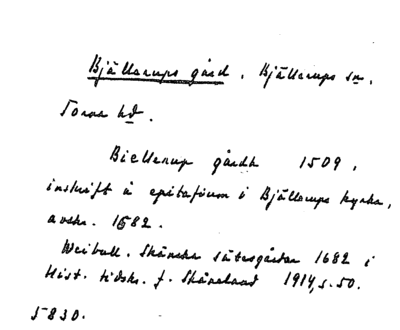 Bjällerups gård. Bjällerups sn.
Torna hd.
Biellerup gårdh 1509,
inskrift å epitafium i Bjällerups kyrka,
avskr. 1682.
Weibull. Skånska sätesgårdar 1682 i
Hist. tidskr. f. Skåneland 1914, s. 50.
5830.